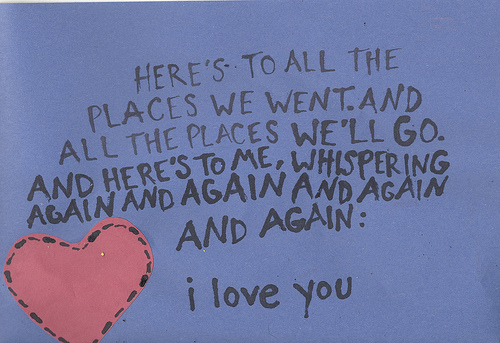 HERE'S TO ALL THE
PLACES WE WENT. AND
ALL THE PLACES WE'LL GO.
AND HERE'S TO ME, WHISPERING
AGAIN AND AGAIN AND AGAIN
AND AGAIN:
i love you